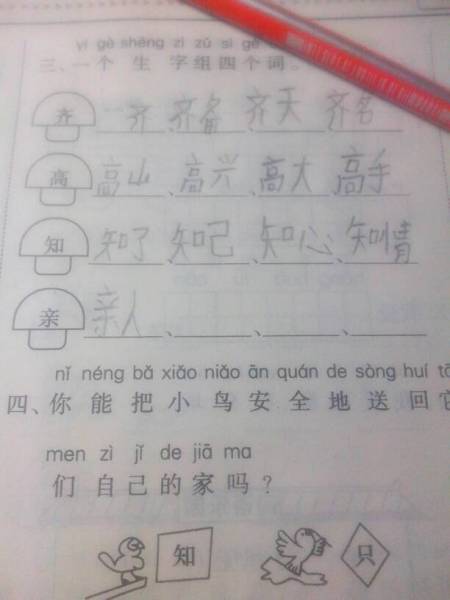 yí gè shēng zì zǔ sì gè
三、一个 生 字组四个词。
齐 一齐、齐备、齐天、齐名
高 高山、高兴、高大、高手
知 知了、知己、知心、知情
亲 亲人、、、
nǐ néng bǎ xiǎo niǎo ān quán de sòng huí tā
四、你 能 把 小 鸟 安 全 地 送 回 它
men zì jǐ de jiā ma
们 自 己 的 家 吗？
知 只